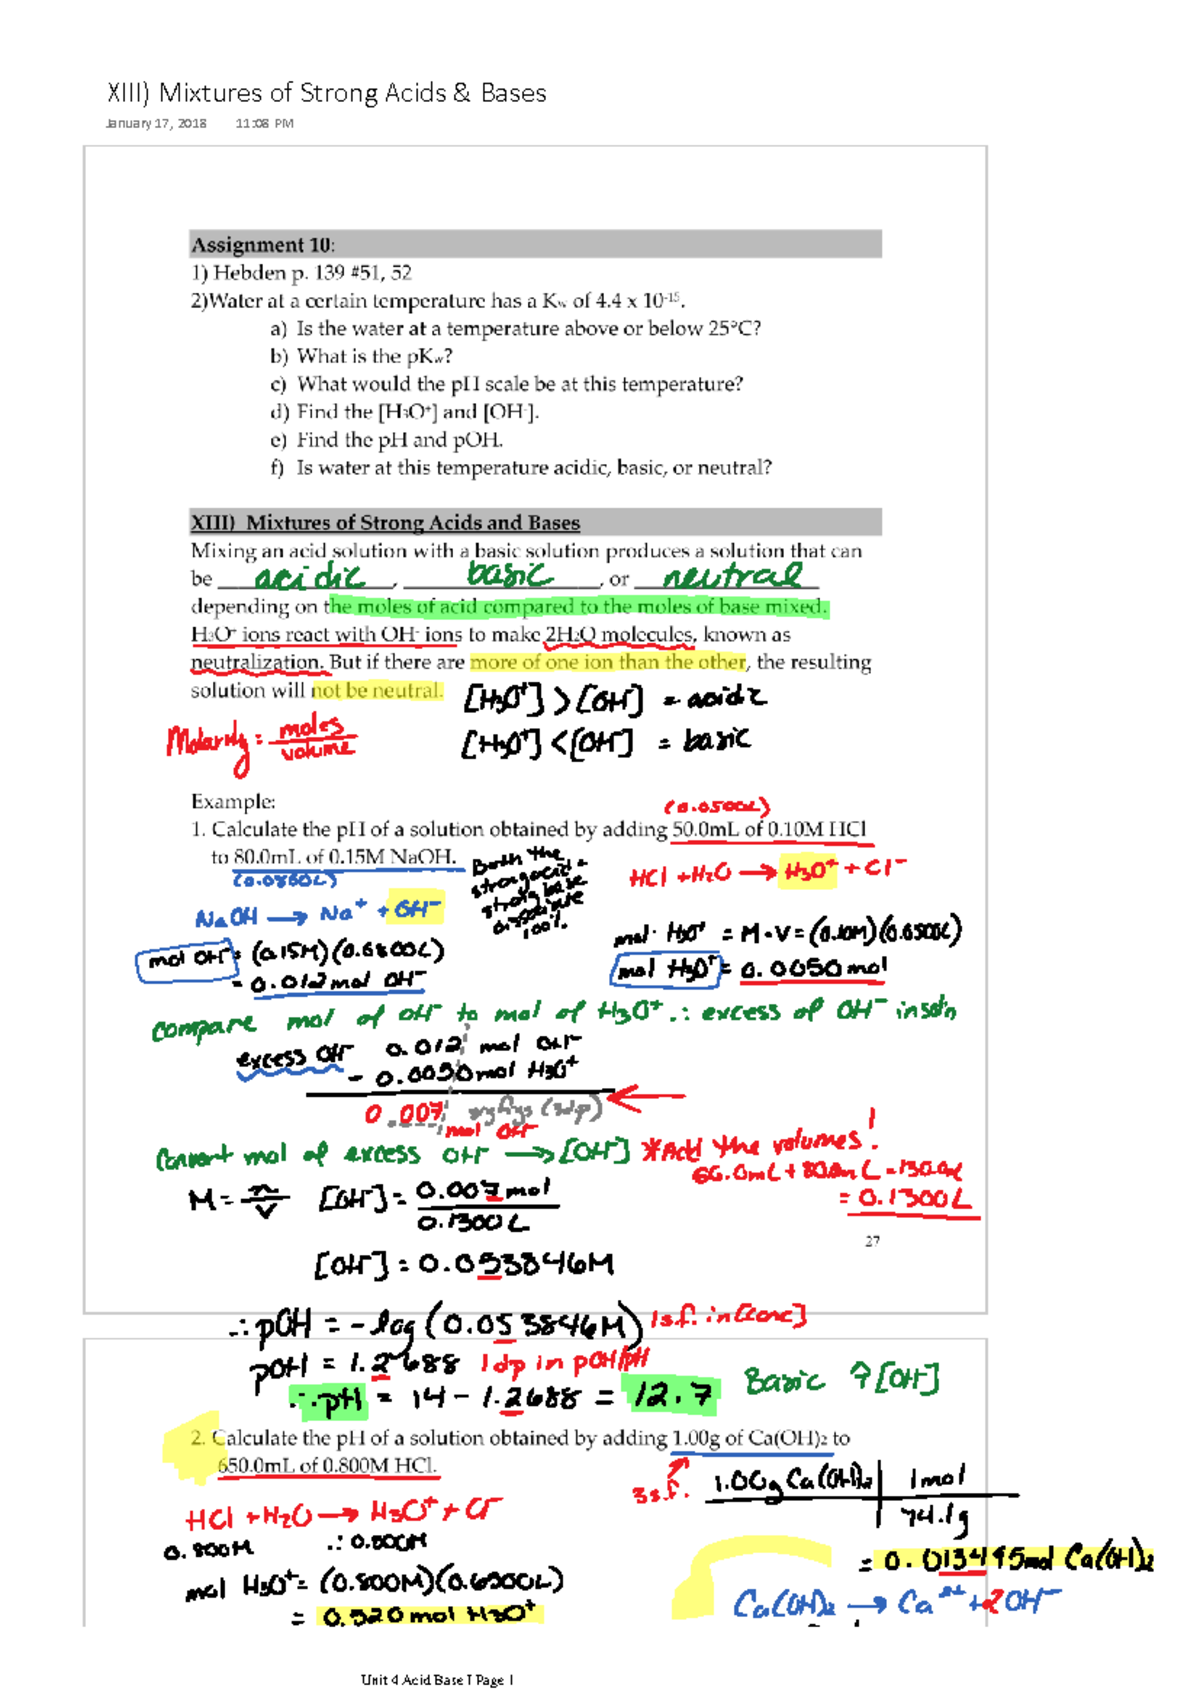 XIII) Mixtures of Strong Acids & Bases
January 17, 2018 11:08 PM
Assignment 10:
1) Hebden p. 139 #51, 52
2)Water at a certain temperature has a Kw of 4.4 x 10⁻¹⁵.
a) Is the water at a temperature above or below 25°C?
b) What is the pKw?
c) What would the pH scale be at this temperature?
d) Find the [H₃O⁺] and [OH⁻].
e) Find the pH and pOH.
f) Is water at this temperature acidic, basic, or neutral?
XIII) Mixtures of Strong Acids and Bases
Mixing an acid solution with a basic solution produces a solution that can
be acidic, basic, or neutral
depending on the moles of acid compared to the moles of base mixed.
H₃O⁺ ions react with OH⁻ ions to make 2H₂O molecules, known as
neutralization. But if there are more of one ion than the other, the resulting
solution will not be neutral.
[H₃O⁺] > [OH⁻] = acidic
Molarity = moles / volume
[H₃O⁺] < [OH⁻] = basic
Example:
(0.0500L)
1. Calculate the pH of a solution obtained by adding 50.0mL of 0.10M HCl
to 80.0mL of 0.15M NaOH.
(0.0800L)
Both the
strong acid +
strong base
dissociate
100%
HCl + H₂O → H₃O⁺ + Cl⁻
NaOH → Na⁺ + OH⁻
mol H₃O⁺ = M·V = (0.10M)(0.0500L)
mol OH⁻ = (0.15M)(0.0800L)
mol H₃O⁺ = 0.0050 mol
= 0.012 mol OH⁻
compare mol of OH⁻ to mol of H₃O⁺ ∴ excess of OH⁻ in soln
excess OH⁻ 0.012 mol OH⁻
- 0.0050 mol H₃O⁺
0.007 (3dp)
mol OH⁻
Convert mol of excess OH⁻ → [OH⁻] *Add the volumes!
50.0mL + 80.0mL = 130.0mL
= 0.1300L
M = n / V [OH⁻] = 0.007 mol / 0.1300L
27
[OH⁻] = 0.053846M
∴ pOH = -log (0.053846M) 1 s.f. in [conc]
pOH = 1.2688 1 dp in pOH/pH
∴ pH = 14 - 1.2688 = 12.7 Basic ↑[OH⁻]
2. Calculate the pH of a solution obtained by adding 1.00g of Ca(OH)₂ to
650.0mL of 0.800M HCl.
3 s.f. 1.00g Ca(OH)₂ | 1 mol
74.1g
HCl + H₂O → H₃O⁺ + Cl⁻
0.800M ∴ 0.800M
= 0.013495 mol Ca(OH)₂
mol H₃O⁺ = (0.800M)(0.6500L)
Ca(OH)₂ → Ca²⁺ + 2OH⁻
= 0.520 mol H₃O⁺
Unit 4 Acid Base I Page 1